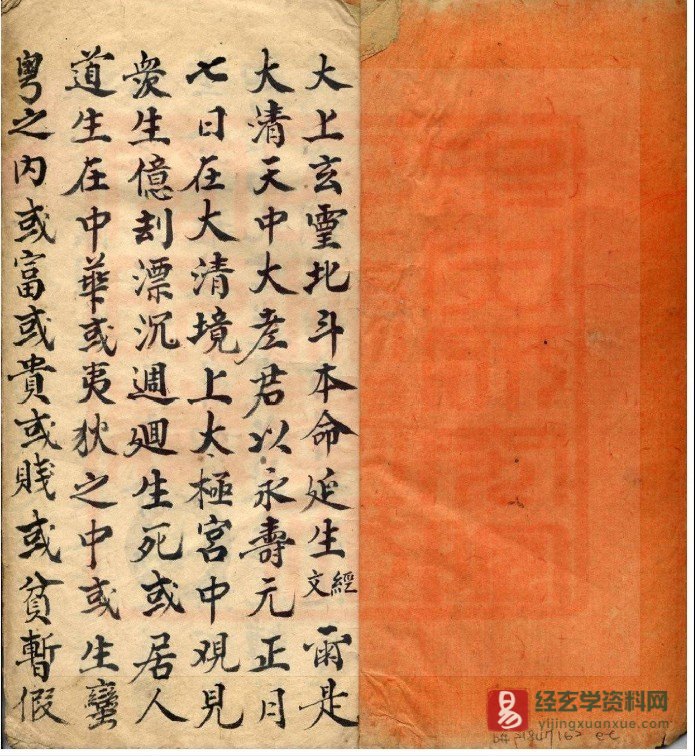 大上玄霊北斗本命延生經文 爾是
大清天中大老君以永壽元正月
七日在大清境上大極宮中观見
衆生億刦漂沉週廻生死或居人
道生在中華或夷狄之中或生蠻
粤之内或富或貴或賤或貧暫假
易
经玄学资料网
yijingxuanxue.com